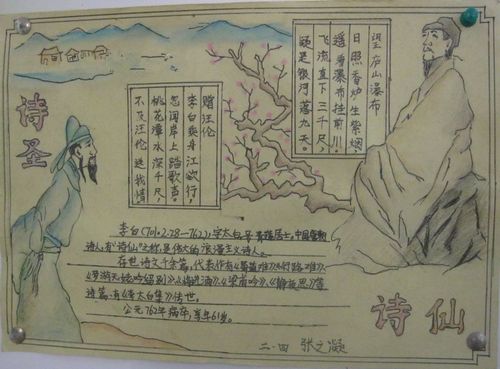 诗圣
赠汪伦
李白乘舟江欲行,
忽闻岸上踏歌声。
桃花潭水深千尺,
不及汪伦送我情
望庐山瀑布
日照香炉生紫烟,
遥看瀑布挂前川
飞流直下三千尺,
疑是银河落九天。
李白(701.2.28—762),字太白号青莲居士。中国唐朝
诗人,有“诗仙”之称,是伟大的浪漫主义诗人。
在世诗文千余篇,代表作有《蜀道难》《行路难》、
《梦游天姥吟留别》、《将进酒》、《梁甫吟》、《静夜思》等
诗篇,有《李太白集》传世。
公元762年病卒,享年61岁。
诗仙
二.四 张之凝